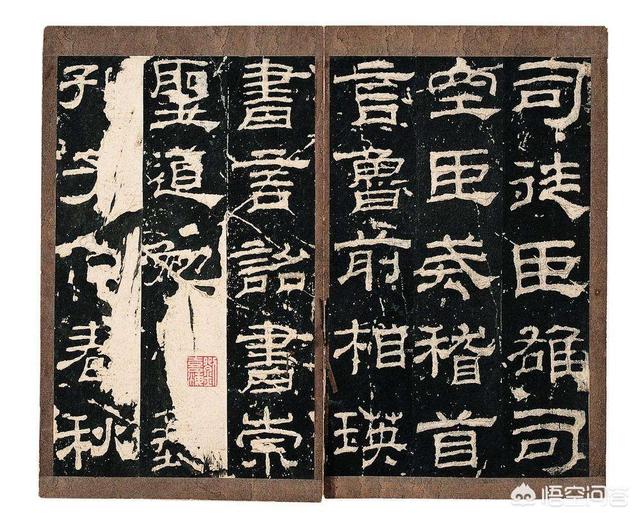 司徒臣雄司
空臣戒稽首
言魯前相瑛
書言詔書崇
聖道勉
孔子作春秋
悟空问答